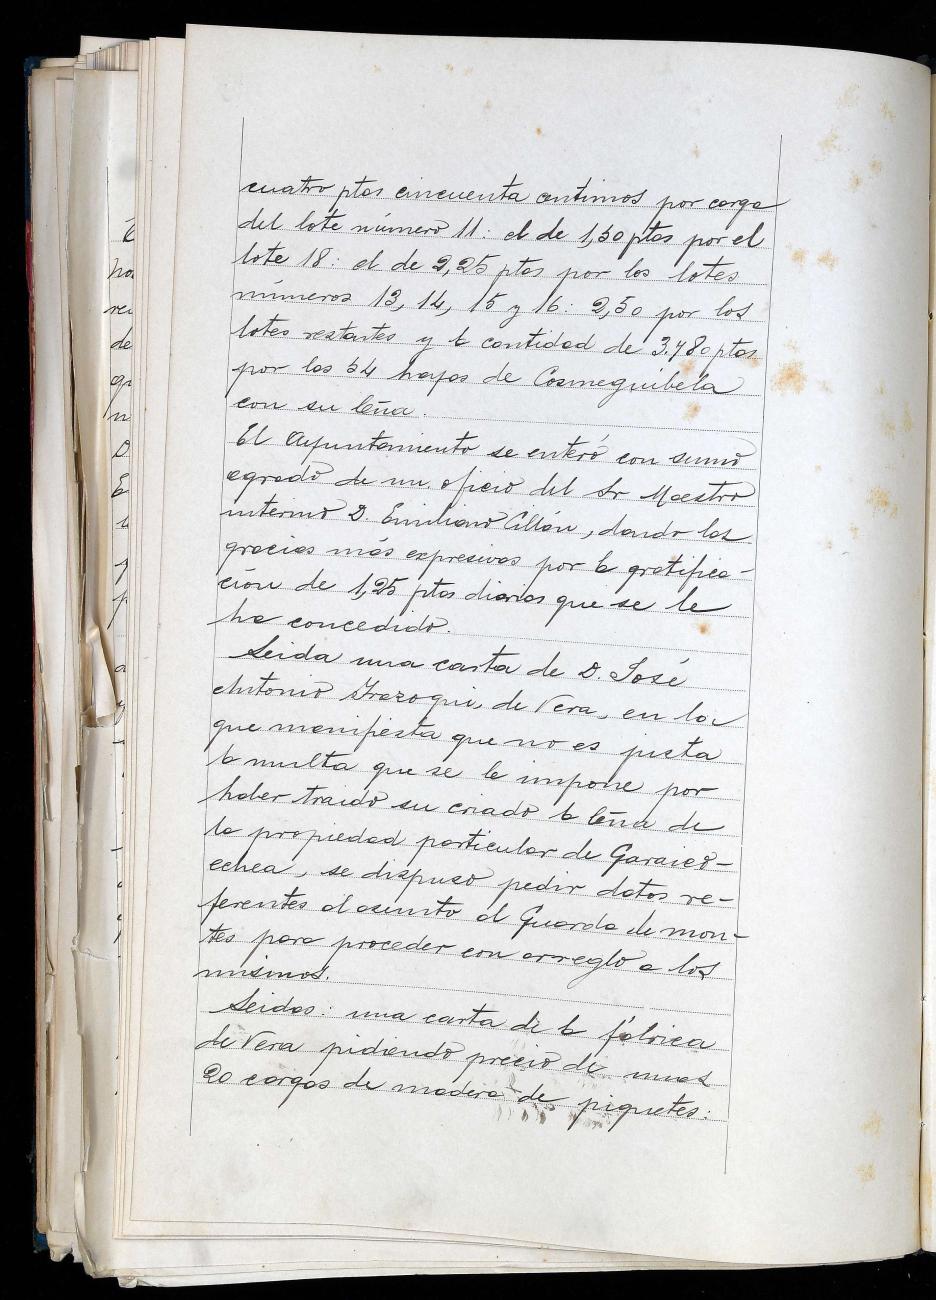 cuatro ptas cincuenta centimos por carga
del lote número 11: el de 1,50 ptas por el
lote 18: el de 2,25 ptas por los lotes
números 13, 14, 15 y 16: 2,50 por los
lotes restantes y la cantidad de 3.780 ptas
por las 54 hayas de Cosmeguibela
con su leña.
El Ayuntamiento se enteró con sumo
agrado de un oficio del Sr Maestro
interino D. Emiliano Cillán, dando las
gracias más expresivas por la gratifica-
ción de 1,25 ptas diarias que se le
ha concedido.
Leida una carta de D. José
Antonio Irazoqui, de Vera, en la
que manifiesta que no es justa
la multa que se le impone por
haber traido su criado la leña de
la propiedad particular de Garaico-
echea, se dispuso pedir datos re-
ferentes al asunto al Guarda de mon-
tes para proceder con arreglo a los
mismos.
Leidas: una carta de la fábrica
de Vera pidiendo precio de unas
20 cargas de madera de piquetes: